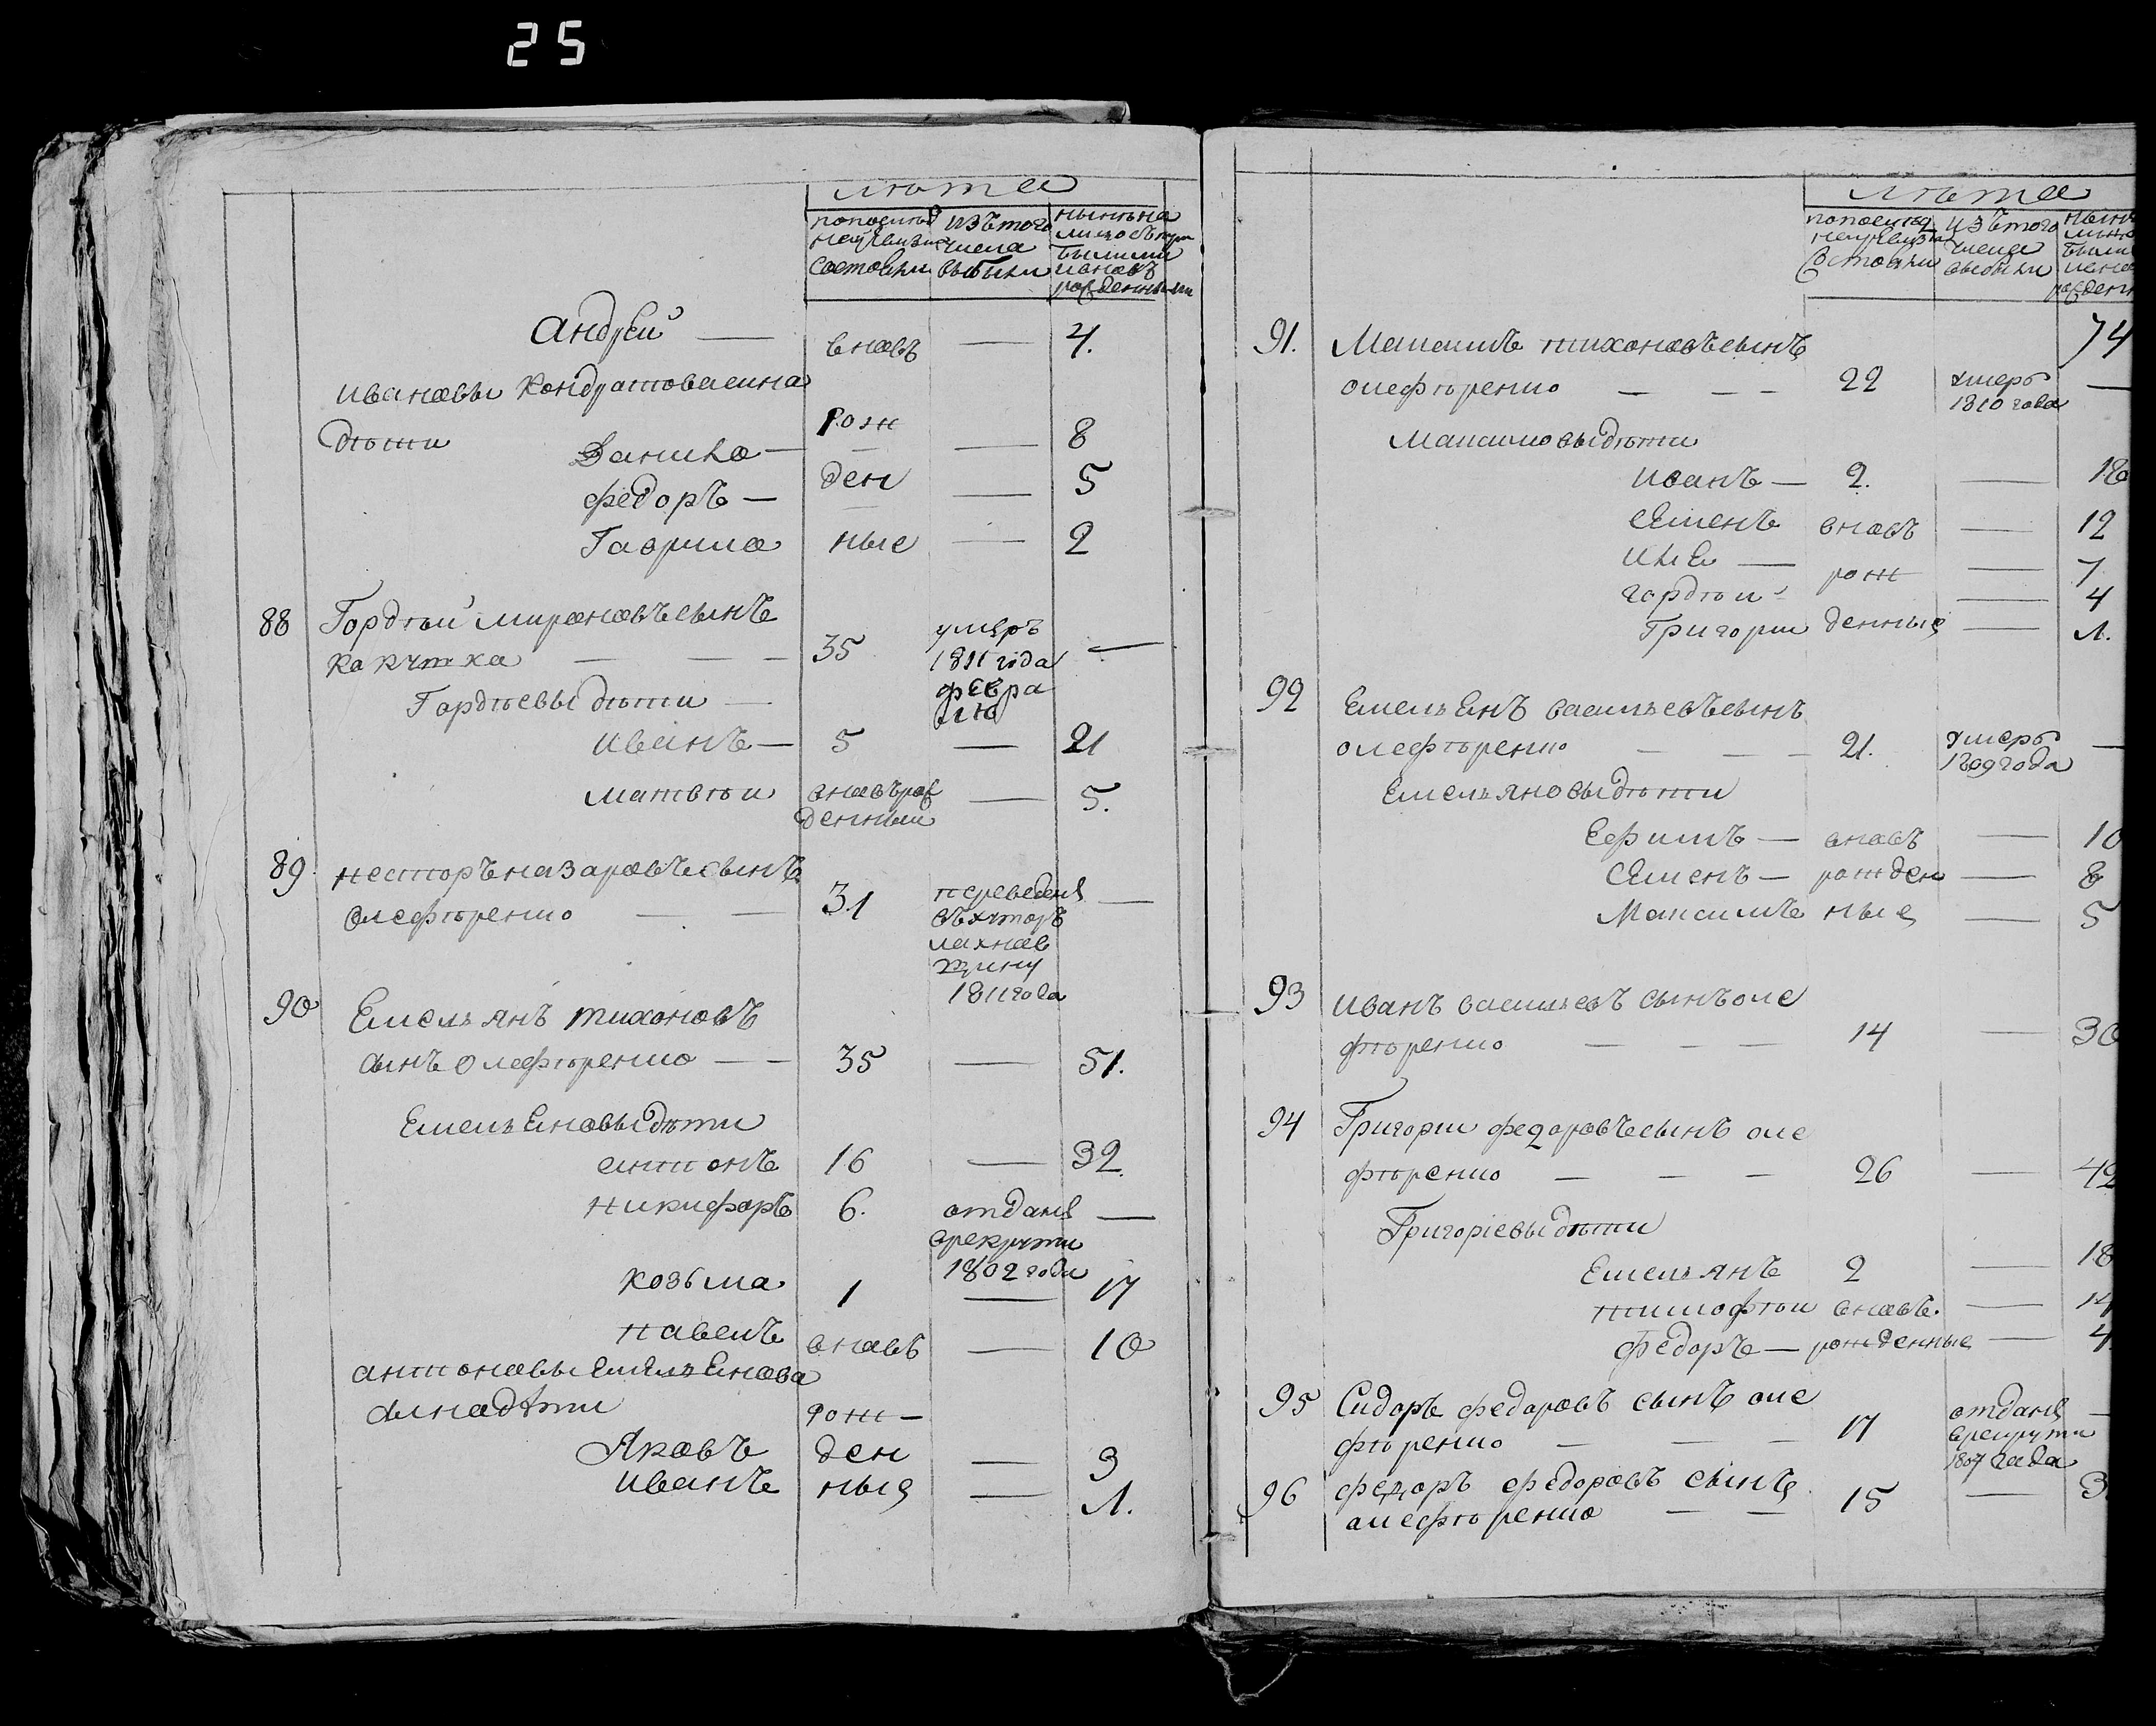 25
лѣта
попослѣд изътого нынѣна
нейревизіи числа лицосътѣми
состояли выбыли былыми
иновъ
рожденными
Андрей — вновь — 4.
ивановы кондратовасина
дѣти
Данило — рож — 8
федоръ — ден — 5
Гаврило ные — 2
88 Гордѣй мироновъ сынъ
какутка — — — 35 умеръ —
1811 года
февра
лю
Гордѣевы дѣти —
иванъ — 5 — 21
матвѣи вновърож — 5.
денныи
89. несторъ назаровъ сынъ
олефѣренко — — 31 переведенъ —
въхуторъ
лахнов
щину
1811 года
90 Емельянъ тихоновъ
сынъ олефѣренко — — 35 — 51.
Емельеновы дѣти
антонъ 16 — 32.
никифоръ 6. отданъ —
врекруты
1802 года
козьма 1 — 17
павелъ вновъ — 10
антоновы емельенова
сынадѣти рож —
Яковъ ден — 3
иванъ ныя — 1.
лѣта
попослед изътого нын
нейревизіи числа лицо
состояли выбыли был
ино
рожден
91. Максимъ тихоновъ сынъ 74
олефѣренко — — 22 умеръ —
1810 года
Максимовы дѣти
иванъ — 2. — 18
семенъ вновъ — 12
илья — рож — 7
гордѣи — 4
Григори денныя — 1.
92 Емельенъ васильевъ сынъ
олефѣренко — — 21. умеръ —
1809 года
Емельяновы дѣти
Ефимъ — вновъ — 10
Семенъ — рожден — 8
Максимъ ныя — 5
93 иванъ васильевъ сынъ оле
фѣренко — — — 14 — 30
94 Григори федоровъ сынъ оле
фѣренко — — — 26 — 42
Григоріевы дѣти
Емельянъ 2 — 18
тимофѣи вновъ. — 14
федоръ — рожденные — 4
95 Сидоръ федоровъ сынъ оле
фѣренко — — — 17 отданъ —
врекруты
1807 года
96 федоръ федоровъ сынъ
олефѣренко — — 15 — 3